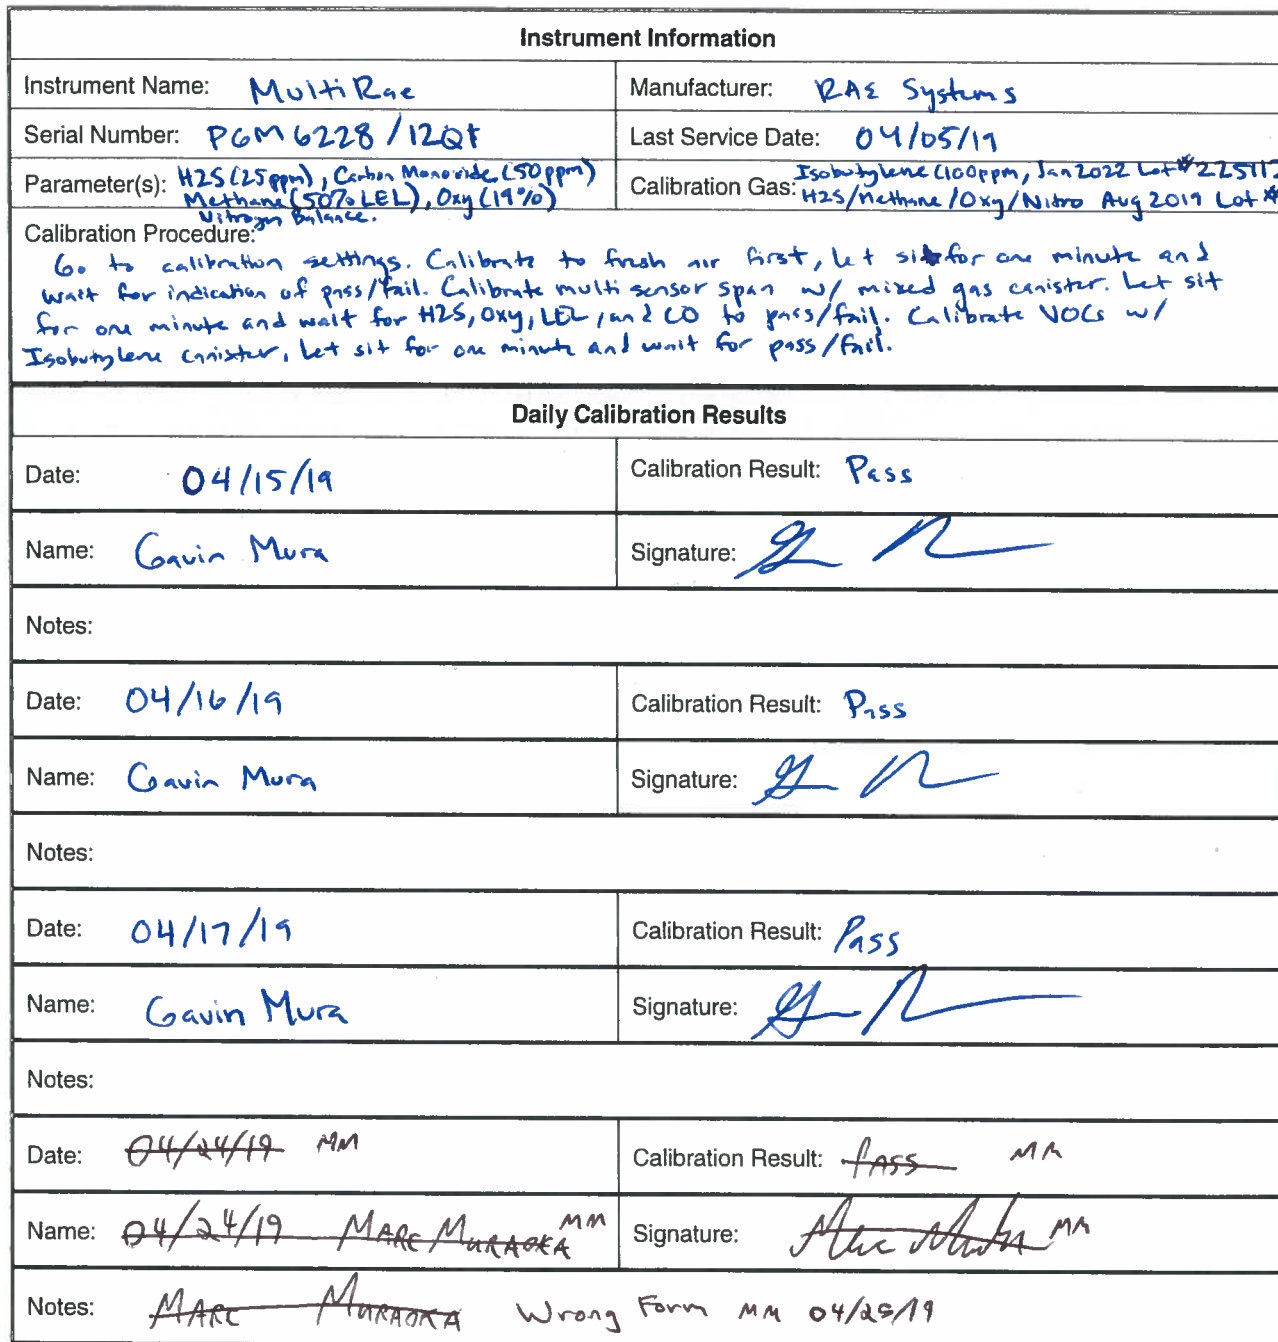 Instrument Information
Instrument Name: MultiRae Manufacturer: RAE Systems
Serial Number: PGM 6228 / 12Qt Last Service Date: 04/05/19
Parameter(s): H2S (25 ppm), Carbon Monoxide (50 ppm)
Methane (50% LEL), Oxy (19%)
Nitrogen Balance.
Calibration Gas: Isobutylene (100ppm, Jan 2022 Lot #225117
H2S/Methane/Oxy/Nitro Aug 2019 Lot #
Calibration Procedure:
Go to calibration settings. Calibrate to fresh air first, let sit for one minute and
wait for indication of pass/fail. Calibrate multi sensor span w/ mixed gas canister. Let sit
for one minute and wait for H2S, Oxy, LEL, and CO to pass/fail. Calibrate VOCs w/
Isobutylene canister, let sit for one minute and wait for pass/fail.
Daily Calibration Results
Date: 04/15/19 Calibration Result: Pass
Name: Gavin Mura Signature:
Notes:
Date: 04/16/19 Calibration Result: Pass
Name: Gavin Mura Signature:
Notes:
Date: 04/17/19 Calibration Result: Pass
Name: Gavin Mura Signature:
Notes:
Date: 04/24/19 MM Calibration Result: PASS MM
Name: 04/24/19 MARC MURAOKA MM Signature: MM
Notes: MARC MURAOKA Wrong Form MM 04/25/19